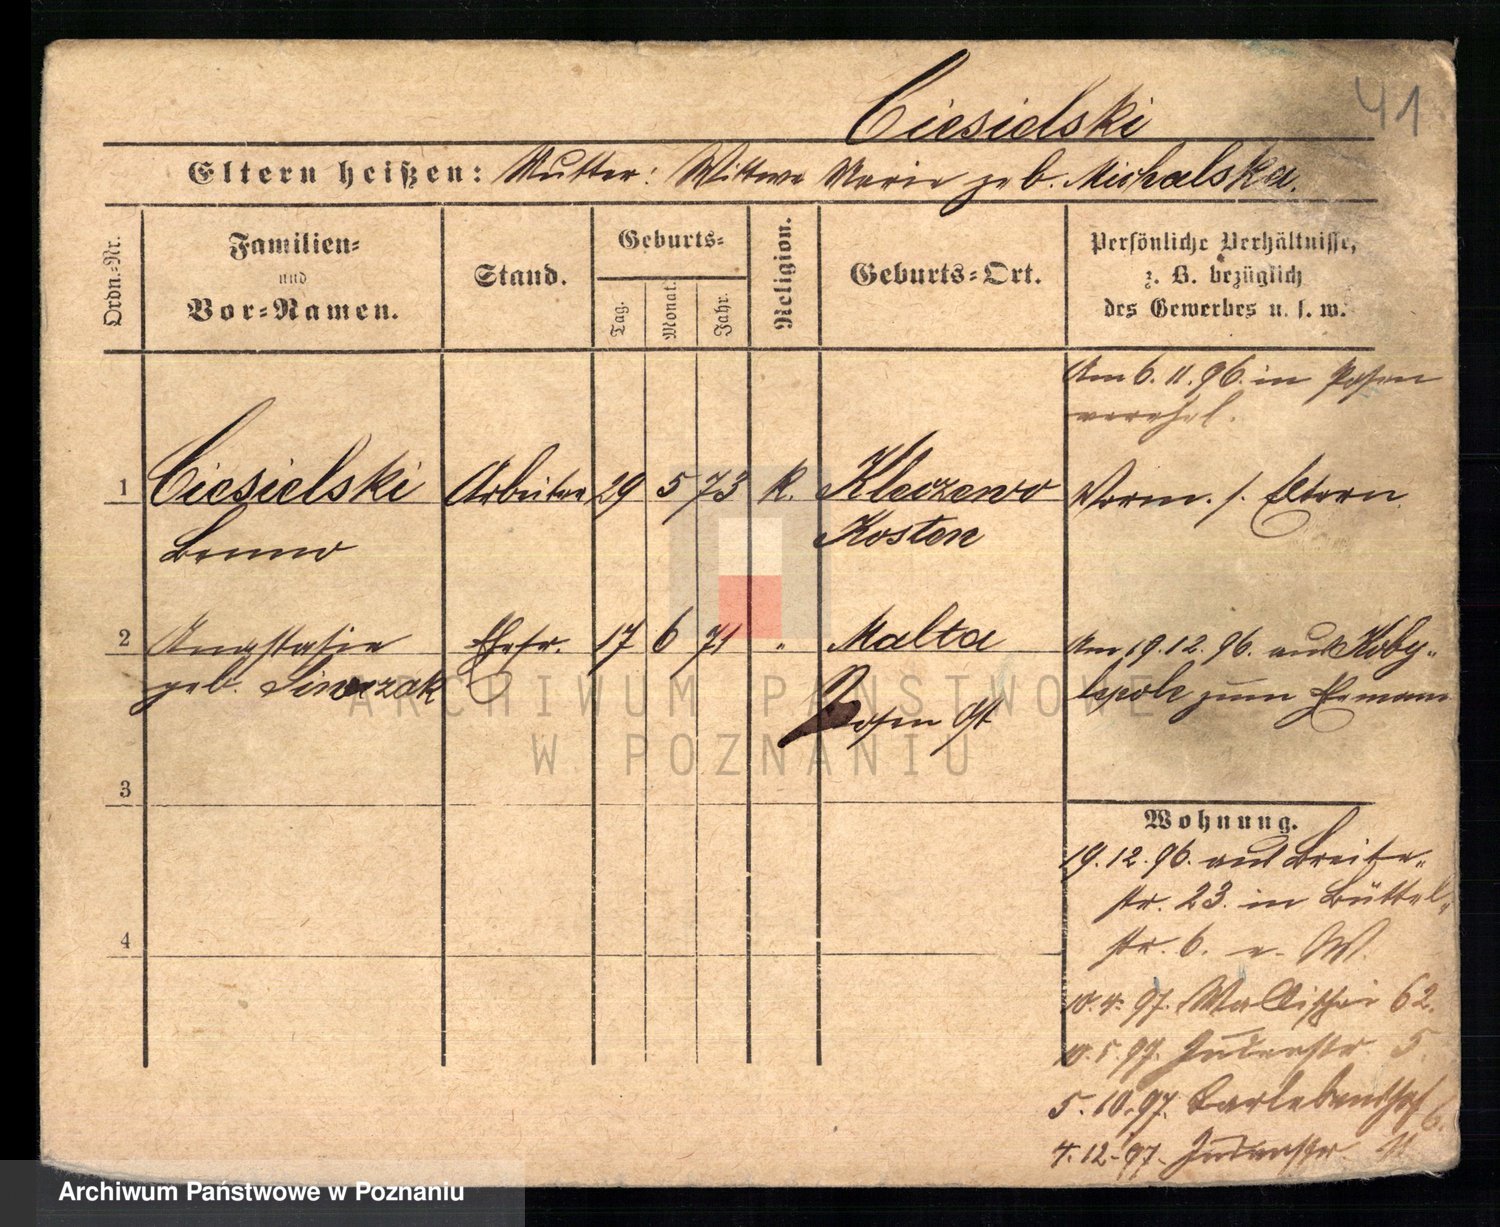 41
Ciesielski
Eltern heißen: Mutter: Wittwe Marie geb. Michalska.
Ordn.-Nr.
Familien-
und
Vor-Namen.
Stand.
Geburts-
Tag.
Monat.
Jahr.
Religion.
Geburts-Ort.
Persönliche Verhältnisse,
z. B. bezüglich
des Gewerbes u. s. w.
Am 6. 11. 96. in Posen
verehel.
1 Ciesielski Arbeiter 29 5 73 k. Kleczewo Vorm. s. Eltern
Benno Kosten
2 Anastasie Ehefr. 17 6 71 " Malta Am 19. 12. 96. aus Koby-
geb. Siwczak Posen Ost lepole zum Ehemann
3
4
Wohnung.
19. 12. 96. aus Breite-
str. 23. in Büttel-
str. 6. b. W.
10. 4. 97. Wallischei 62.
10. 5. 97. Judenstr. 5.
5. 10. 97. Barlebenshof 6.
4. 12. 97. Judenstr. 11
ARCHIWUM PAŃSTWOWE
W POZNANIU
Archiwum Państwowe w Poznaniu